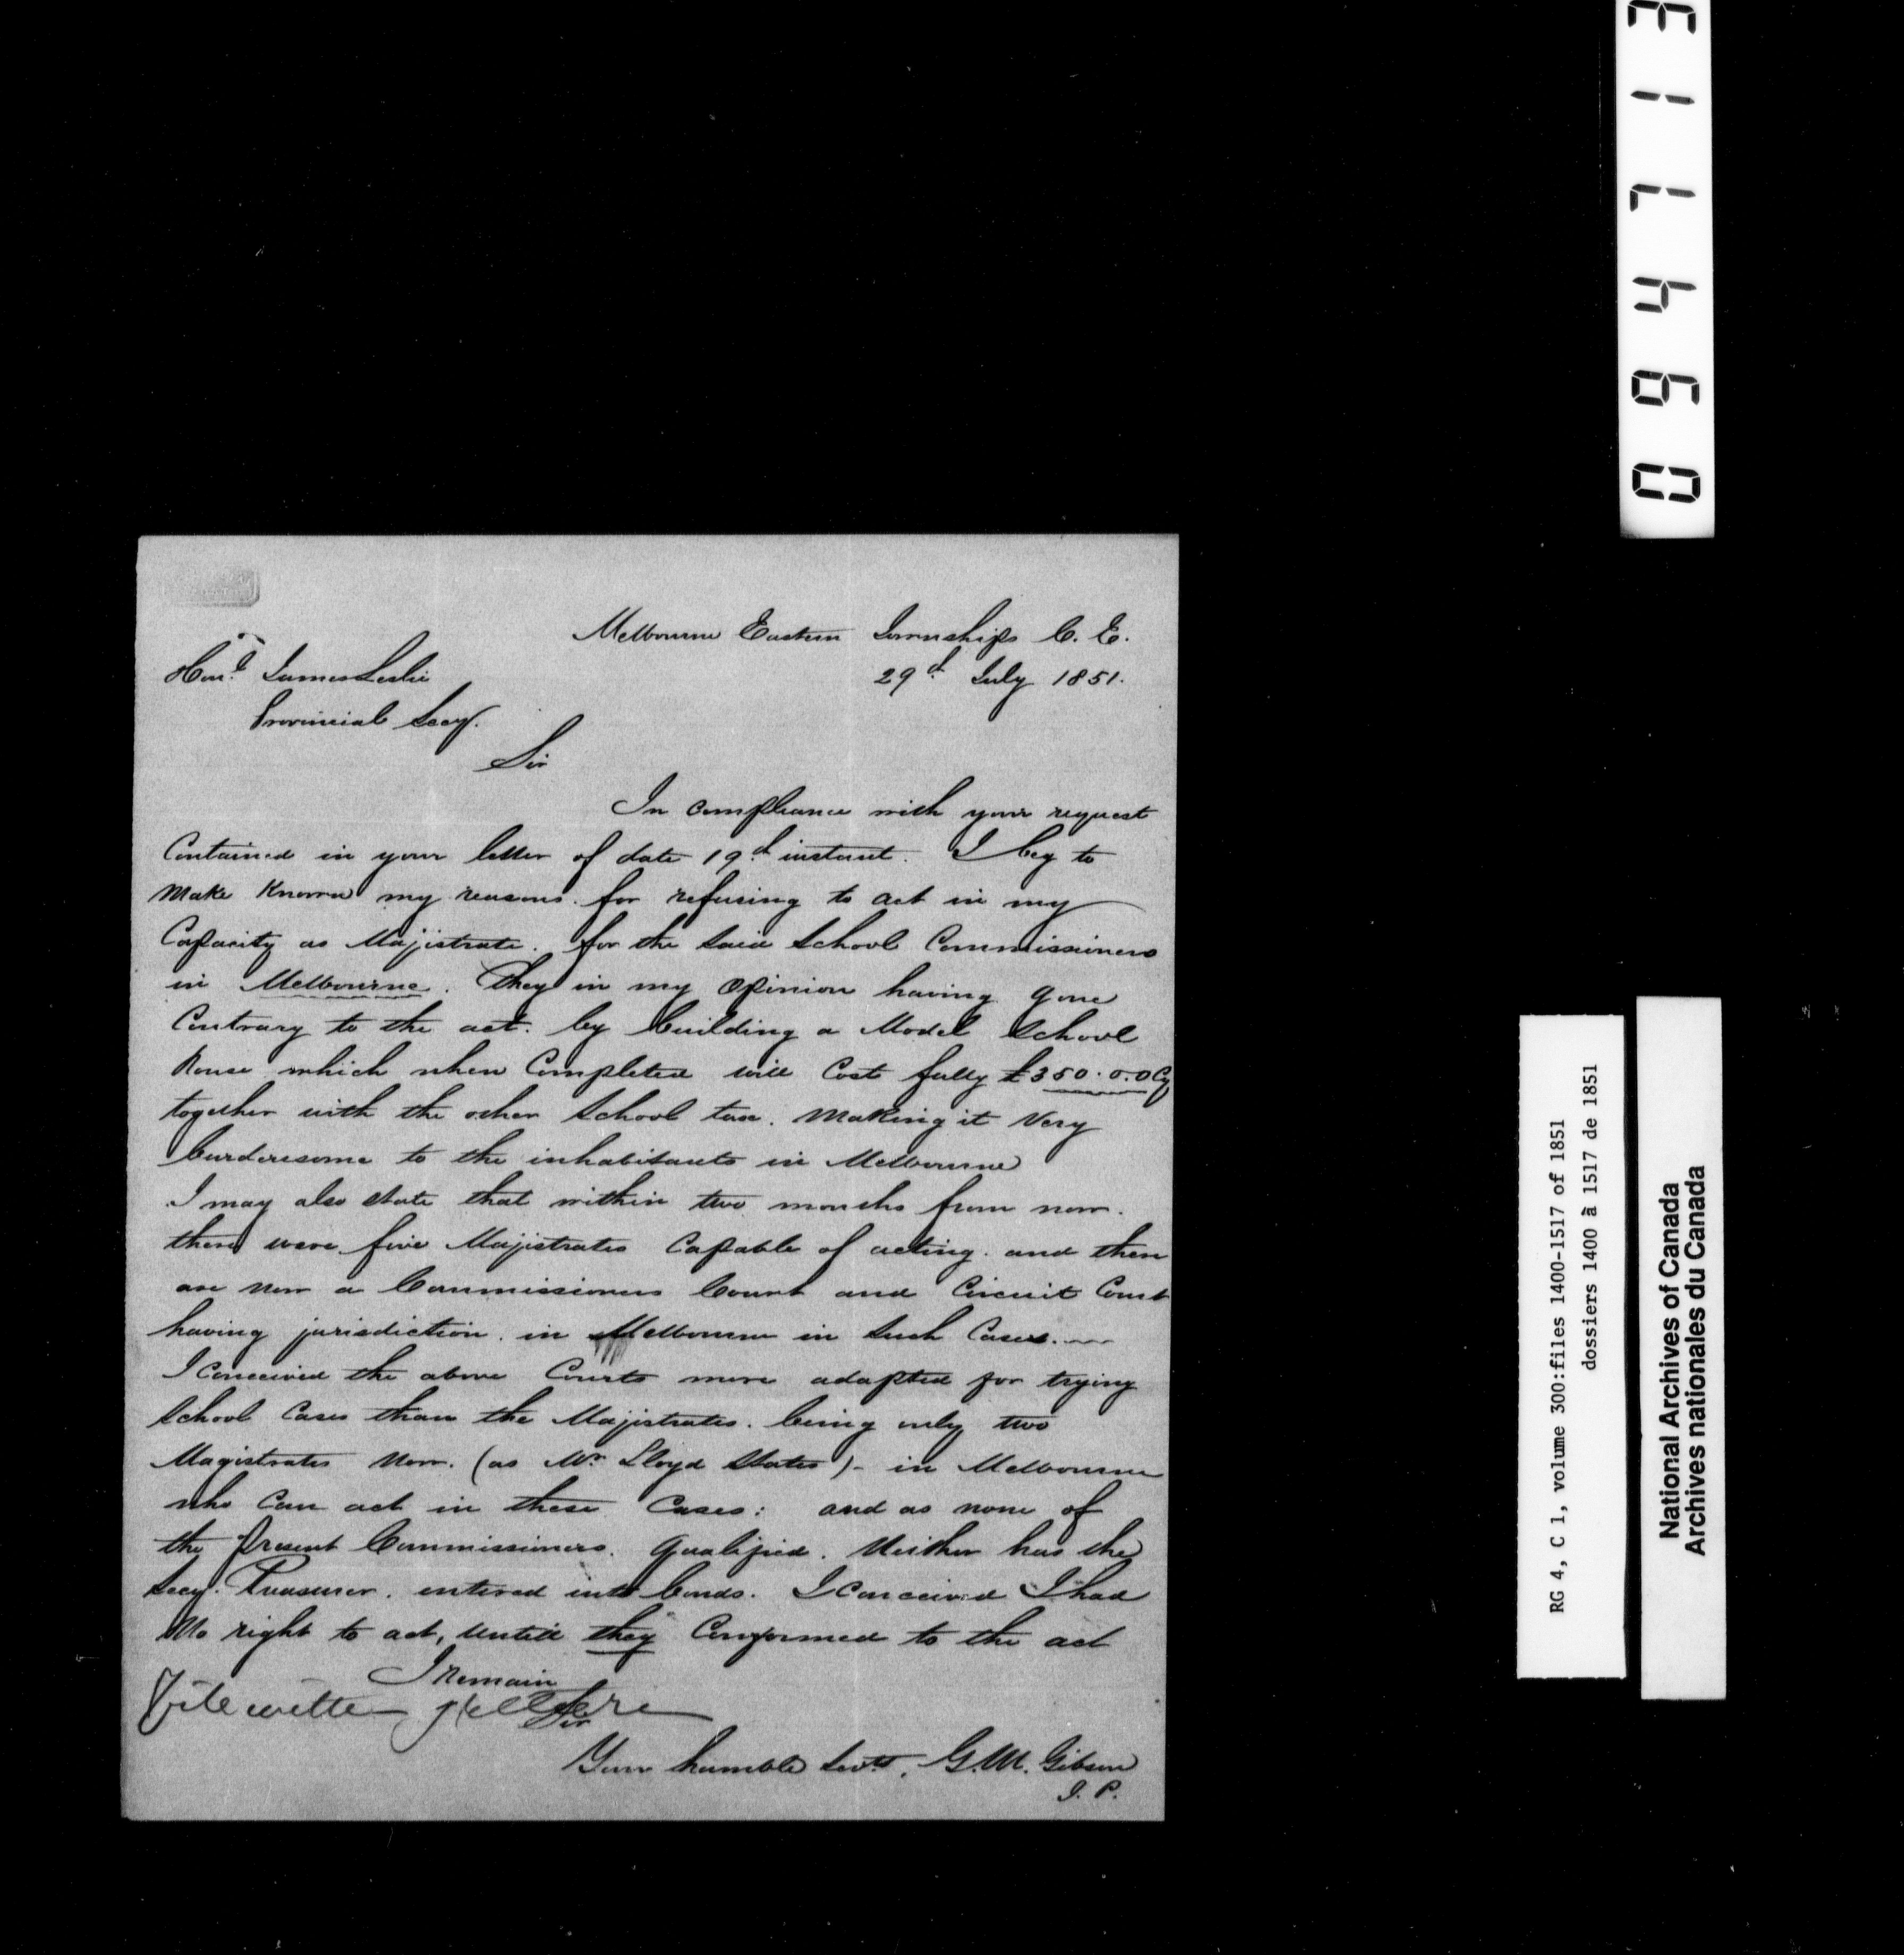 Melbourne Eastern Townships C. E.
29d July 1851.
Honl James Leslie
Provincial Secy.
Sir
In compliance with your request
Contained in your letter of date 19d instant. I beg to
Make Known my reasons. for refusing to act in my
Capacity as Majistrate. for the said School Commissioners
in Melbourne. They in my Opinion having gone
Contrary to the act. by building a Model School
house which when Completed will Cost fully £350.0.0 Cy
together with the other School tax. Making it Very
burdensome to the inhabitants in Melbourne
I may also state that within two months from now.
there were five Majistrates Capable of acting. and there
are now a Commissioners Court and Circuit Court
having jurisdiction. in Melbourne in Such Cases.
I Conceived the above Courts more adapted for trying
School Cases than the Majistrates. being only two
Magistrates Now. (as Mr Lloyd States) - in Melbourne
who Can act in these Cases: and as none of
the Present Commissioners. qualified. Neither has the
Secy. Treasurer. entered into bonds. I Conceived I had
No right to act, untill they Conformed to the act
I remain
Sir
File with
Your humble Servt. G.M. Gibson
J. P.
094713
RG 4, C 1, volume 300:files 1400-1517 of 1851
dossiers 1400 à 1517 de 1851
National Archives of Canada
Archives nationales du Canada